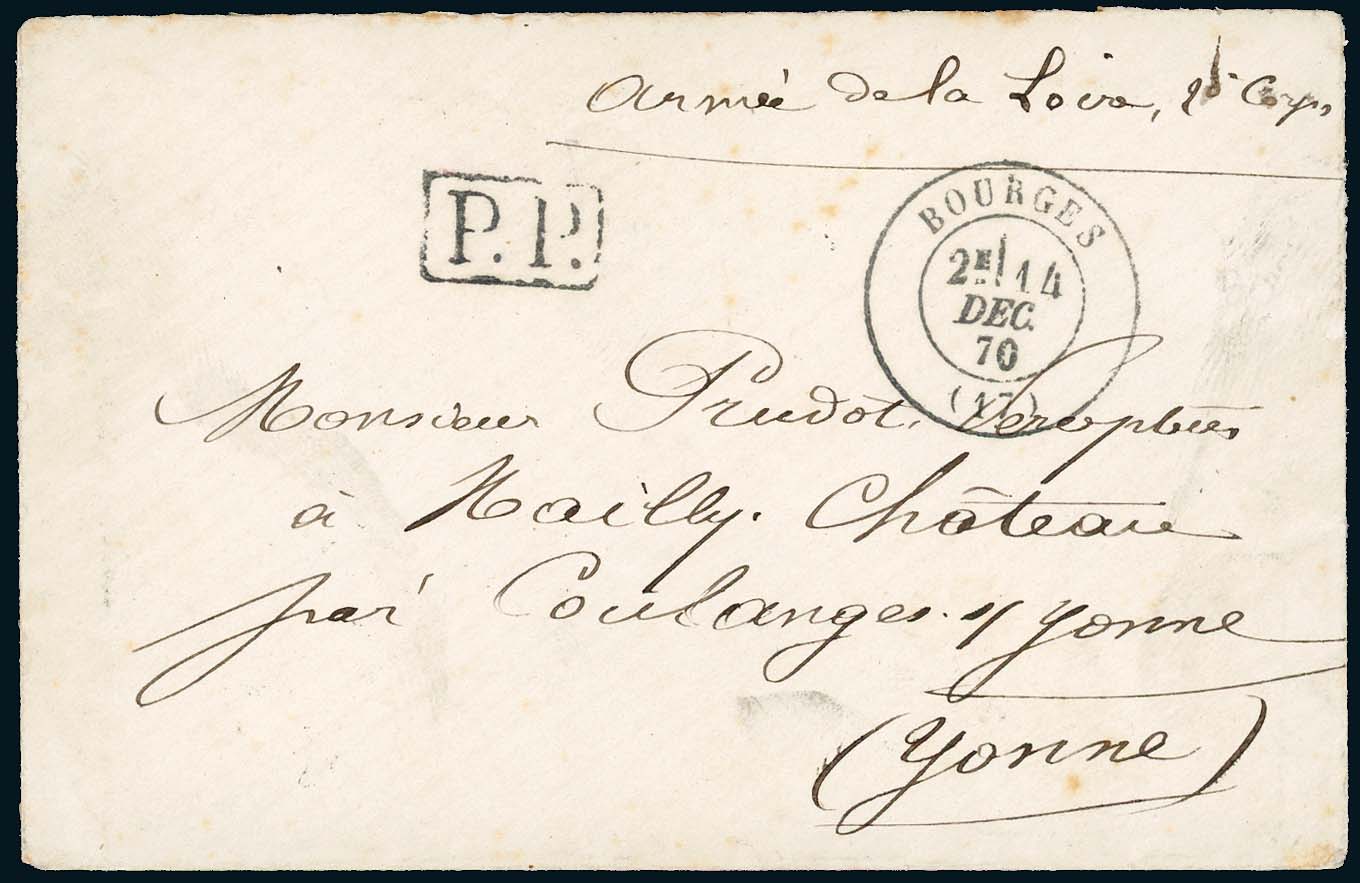 Armée de la Loire, Corps
P.P.
BOURGES
2E 14
DEC.
70
(17)
Monsieur Prudot,
à Mailly-Château
par Coulanges s/ Yonne
(Yonne)